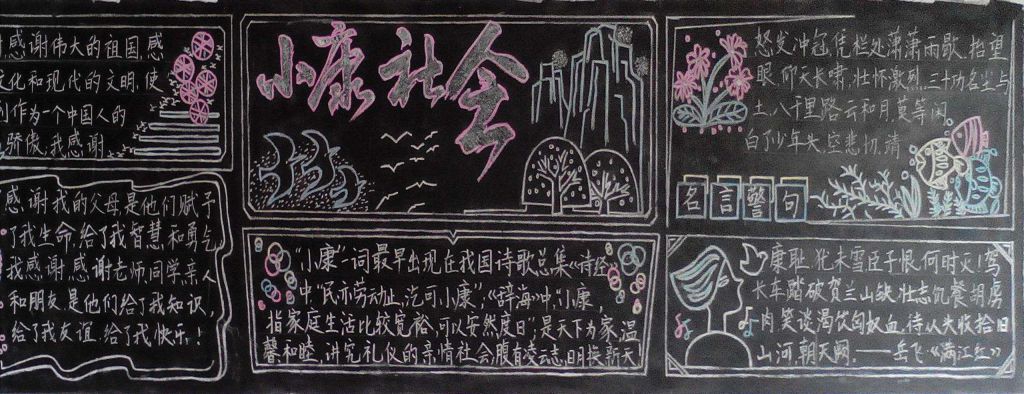 感谢伟大的祖国,感
文化和现代的文明,使
作为一个中国人的
骄傲,我感谢
感谢我的父母是他们赋予
了我生命,给了我智慧和勇气
我感谢,感谢老师,同学,亲人
和朋友,是他们给了我知识,
给了我友谊,给了我快乐!
小康社会
“小康”一词最早出现在我国诗歌总集《诗经》
中,“民亦劳动止,汔可小康”,《辞海》中,小康,
指家庭生活比较宽裕,可以安然度日,是天下为家,温
馨和睦,讲究礼仪的亲情社会,腹有凌云志,日月换新天
怒发冲冠凭栏处,潇萧雨歇,抬望
眼,仰天长啸,壮怀激烈,三十功名尘与
土,八千里路云和月,莫等闲,
白了少年头,空悲切,靖
名言警句
康耻,犹未雪臣子恨,何时灭!驾
长车踏破贺兰山缺,壮志饥餐胡虏
肉,笑谈渴饮匈奴血,待从头收拾旧
山河,朝天阙.——岳飞《满江红》